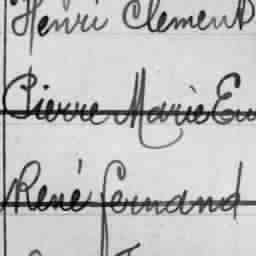 Henri Clement
Pierre Marie Eu
René Fernand